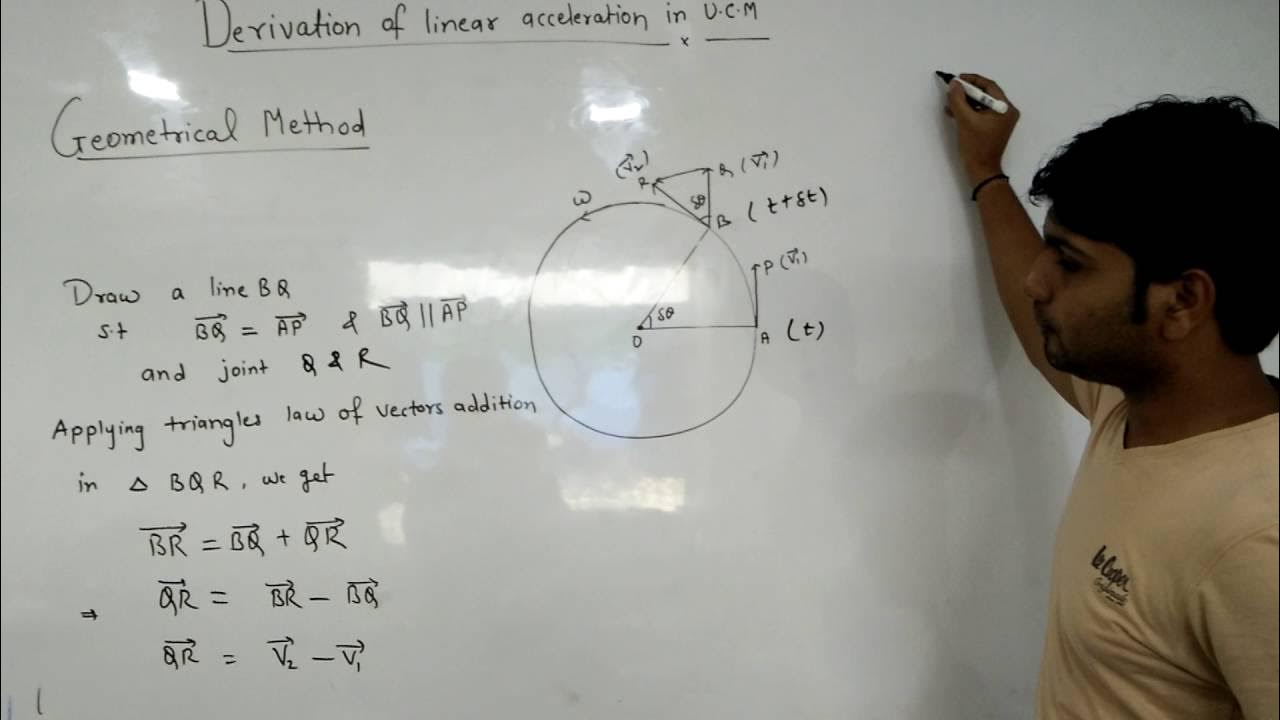 Derivation of linear acceleration in U.C.M
x
Geometrical Method
Draw a line BQ
s.t BQ⃗ = AP⃗ & BQ⃗ || AP⃗
and joint Q & R
Applying triangles law of vectors addition
in △ BQR, we get
BR⃗ = BQ⃗ + QR⃗
⇒ QR⃗ = BR⃗ − BQ⃗
QR⃗ = V⃗₂ − V⃗₁
(V⃗₂)
R
Q (V⃗₁)
ω
δθ
B (t+δt)
P (V⃗₁)
δθ
O
A (t)
Lee Cooper